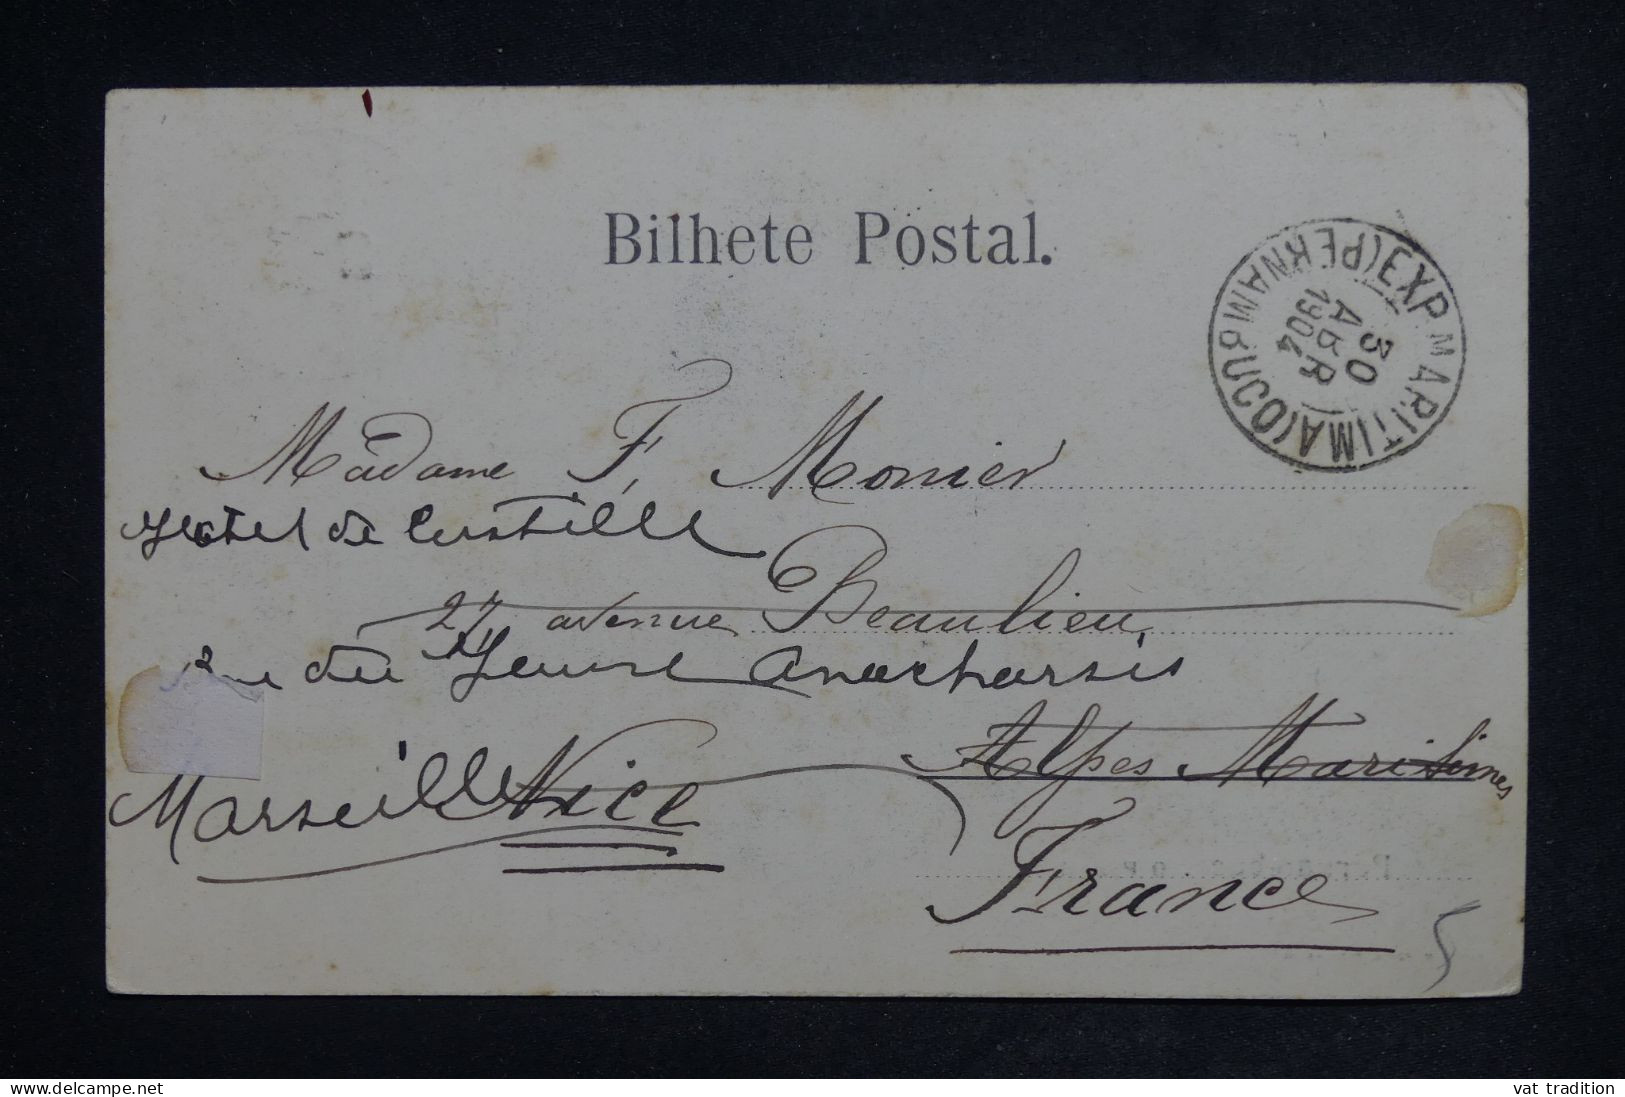 Bilhete Postal.
EXP. MARITIMA (PERNAMBUCO)
30
ABR
1904
Madame F. Monier
Hotel de Castille
27, avenue Beaulieu
Rue du Jeune Anacharsis
Alpes Maritimes
Marseille Nice
France
5
www.delcampe.net
vat tradition